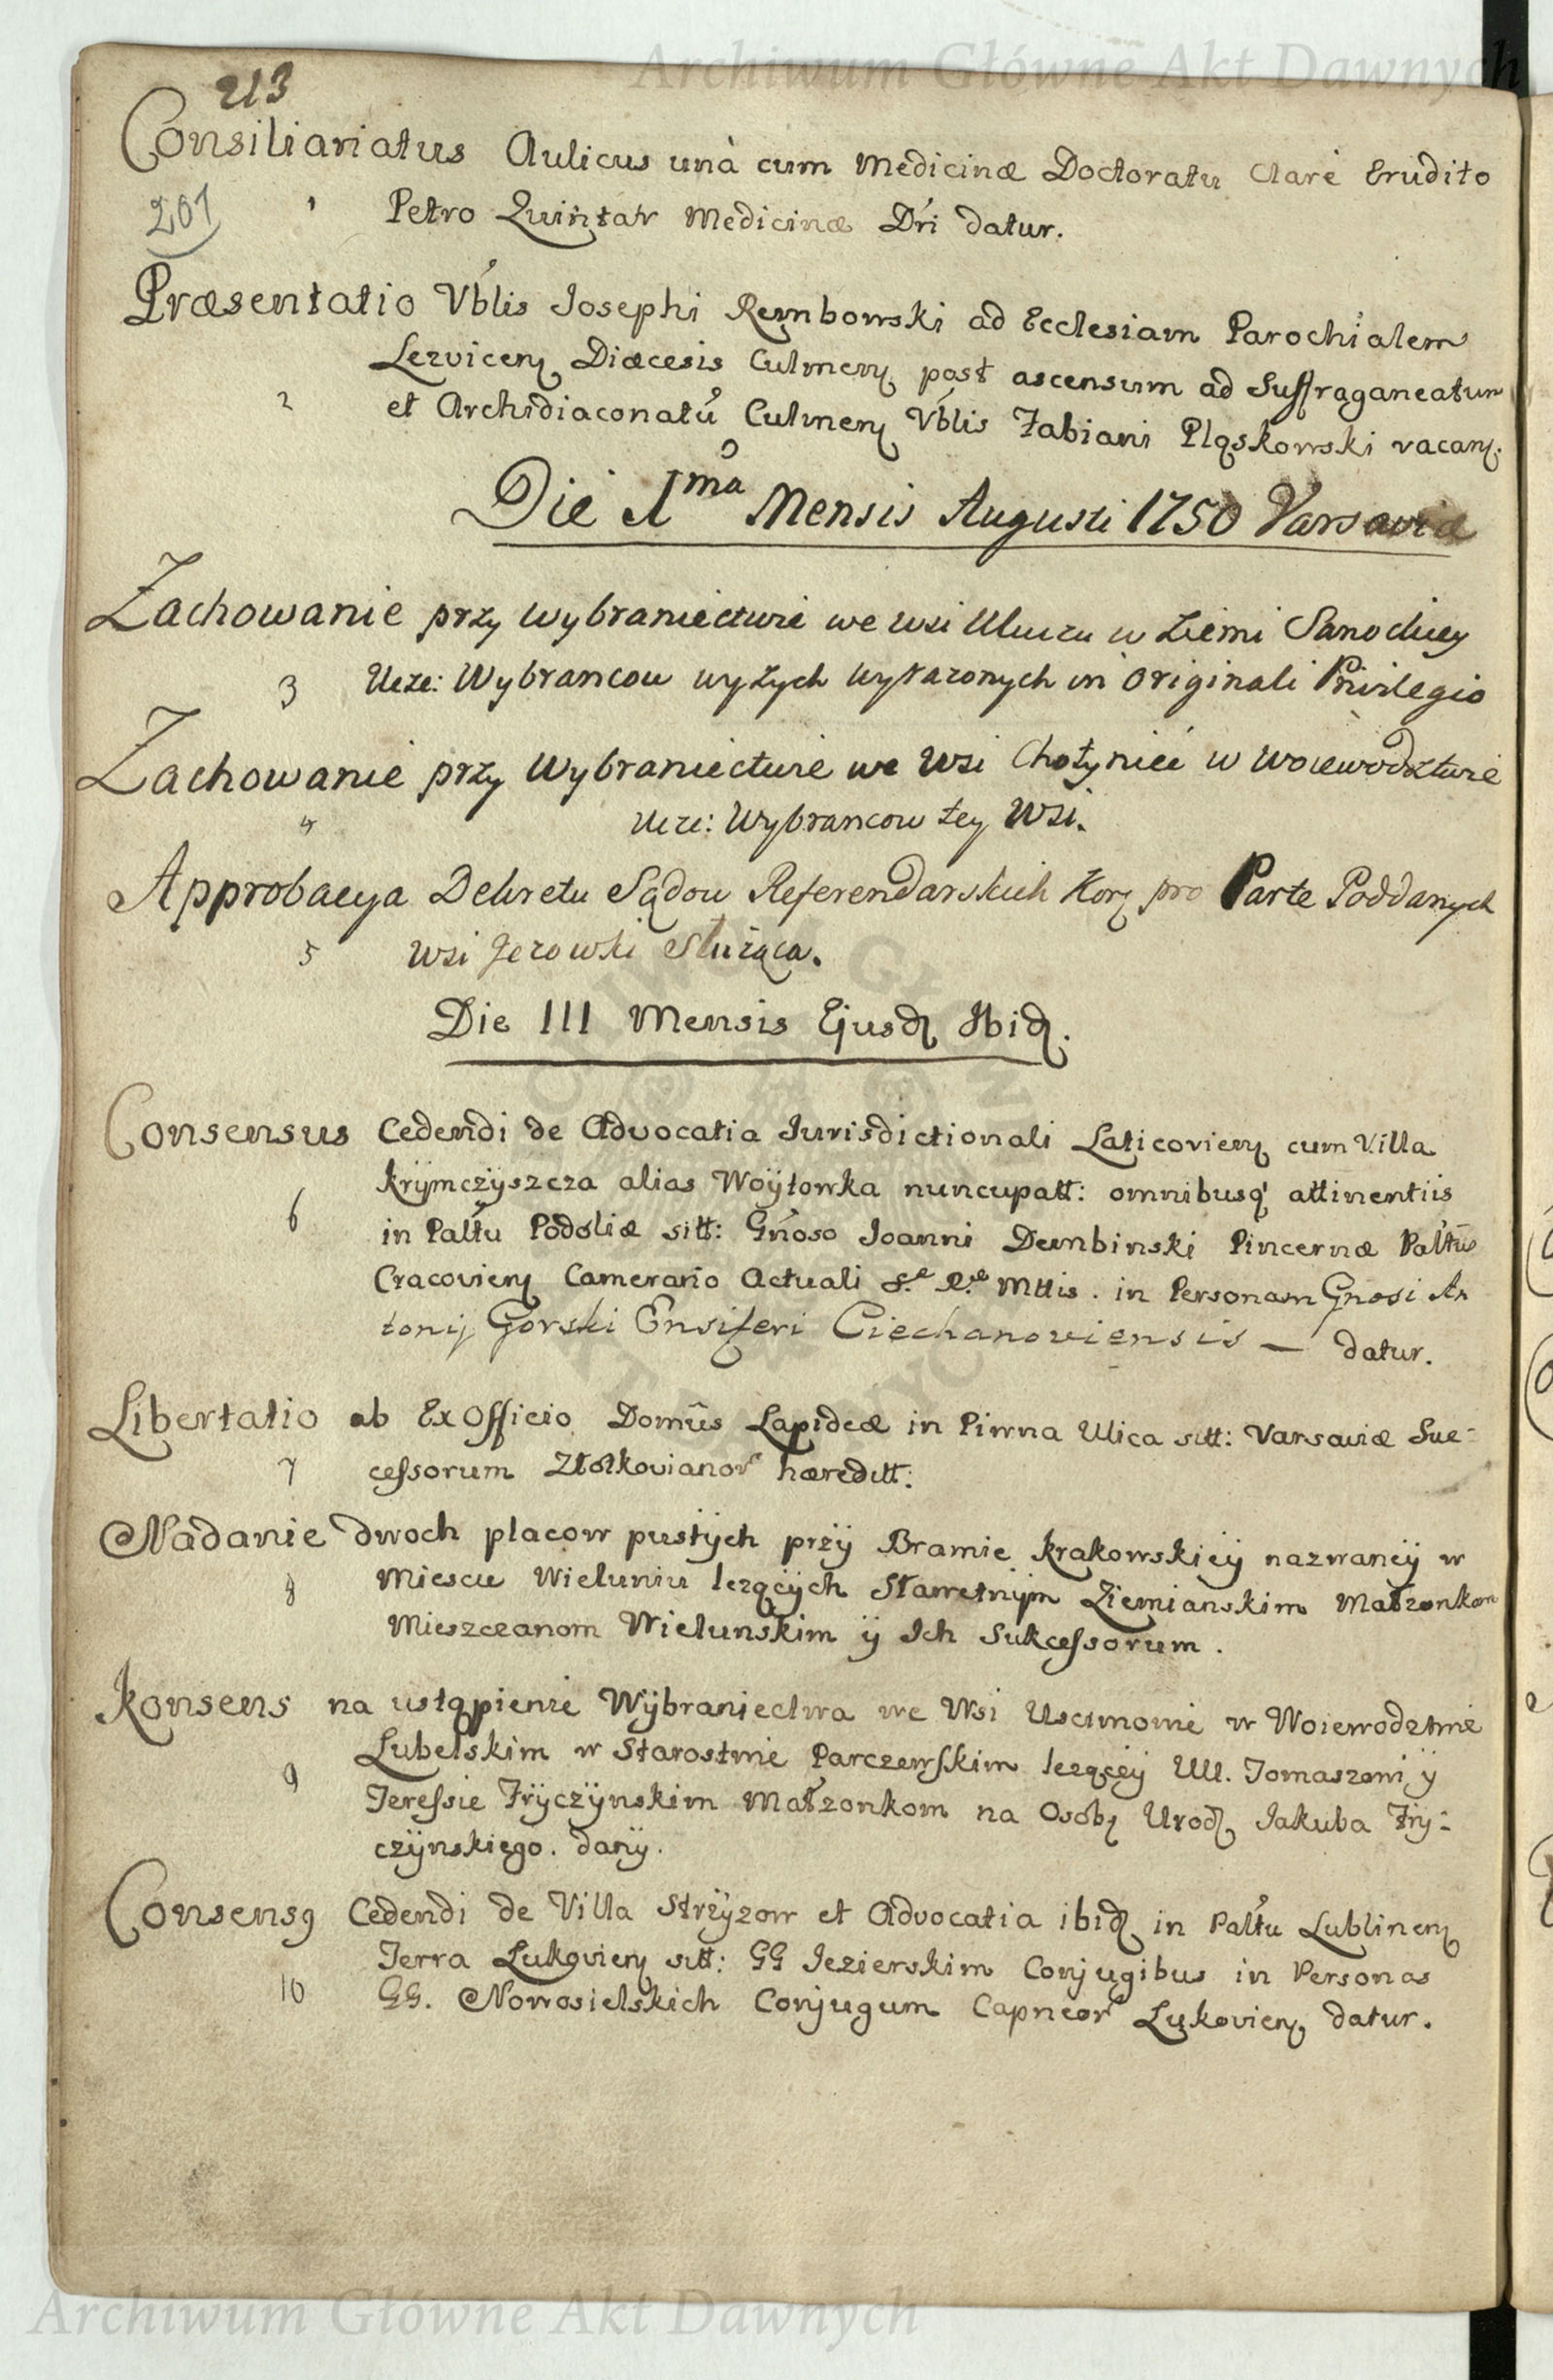 Archiwum Główne Akt Dawnych
213
Consiliariatus Aulicus unà cum Medicinæ Doctoratu Clare Erudito
201
1 Petro Quintar Medicinæ Dri datur.
Præsentatio Vblis Josephi Rembowski ad Ecclesiam Parochialem
Lezvicen Diœcesis Culmen post ascensum ad Suffraganeatum
2 et Archidiaconatu Culmen Vblis Fabiani Pląskowski vacan.
Die Ima Mensis Augusti 1750 Varsaviæ
Zachowanie przy Wybraniectwie we wsi Uluczu w Ziemi Sanockiey
3 Ucze: Wybrancow wyzych wyrazonych in Originali Privilegio
Zachowanie przy Wybraniectwie we Wsi Chotyniec w Woiewodztwie
4 Ucze: Wybrancow tey Wsi.
Approbacya Dekretu Sądow Referendarskich Kor pro Parte Poddanych
5 Wsi Jezowski Służąca.
Die III Mensis Ejusd Ibid.
Consensus Cedendi de Advocatia Jurisdictionali Laticovien cum Villa
Krÿmczÿszcza alias Woÿtowka nuncupatt: omnibusq attinentiis
6 in Paltu Podoliæ sitt: Gnoso Joanni Dembinski Pincernæ Paltus
Cracovien Camerario Actuali S.æ R.æ Mttis. in Personam Gnosi An
tonij Gorski Ensiferi Ciechanoviensis — datur.
Libertatio ab Ex Officio Domûs Lapideæ in Piwna Ulica sitt: Varsaviæ Suc-
7 cessorum Ztotkovianor hæreditt:
Nadanie dwoch placow pustÿch przÿ Bramie Krakowskieÿ nazwaneÿ w
8 Miescie Wieluniu lezącÿch Stawetnÿm Ziemianskim Małzonkom
Mieszczanom Wielunskim ÿ Ich Sukcessorum.
Konsens na ustąpienie Wÿbraniectwa we Wsi Uscimowie w Woiewodztwie
Lubelskim w Starostwie Parczewskim lezącey Ull. Tomaszowi ÿ
9 Teressie Frÿczÿnskim Małzonkom na Osobę Urod Jakuba Frÿ-
czÿnskiego. danÿ.
Consens9 Cedendi de Villa Strzÿzow et Advocatia ibid in Paltu Lublinen
Terra Lukovien sitt: GG Jezierskim Conjugibus in Personas
10 GG. Nowosielskich Conjugum Capneor Lukovien datur.
Archiwum Główne Akt Dawnych